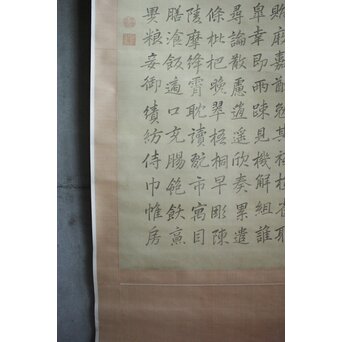 貽厥嘉猷勉其祗植省躬
皐幸即兩踈見機解組誰
尋論散慮逍遙欣奏累遣
條枇杷晚翠梧桐早彫陳
陵摩絳霄耽讀翫市寓目
膳飡飯適口充腸飽飫烹
異粮妾御績紡侍巾帷房